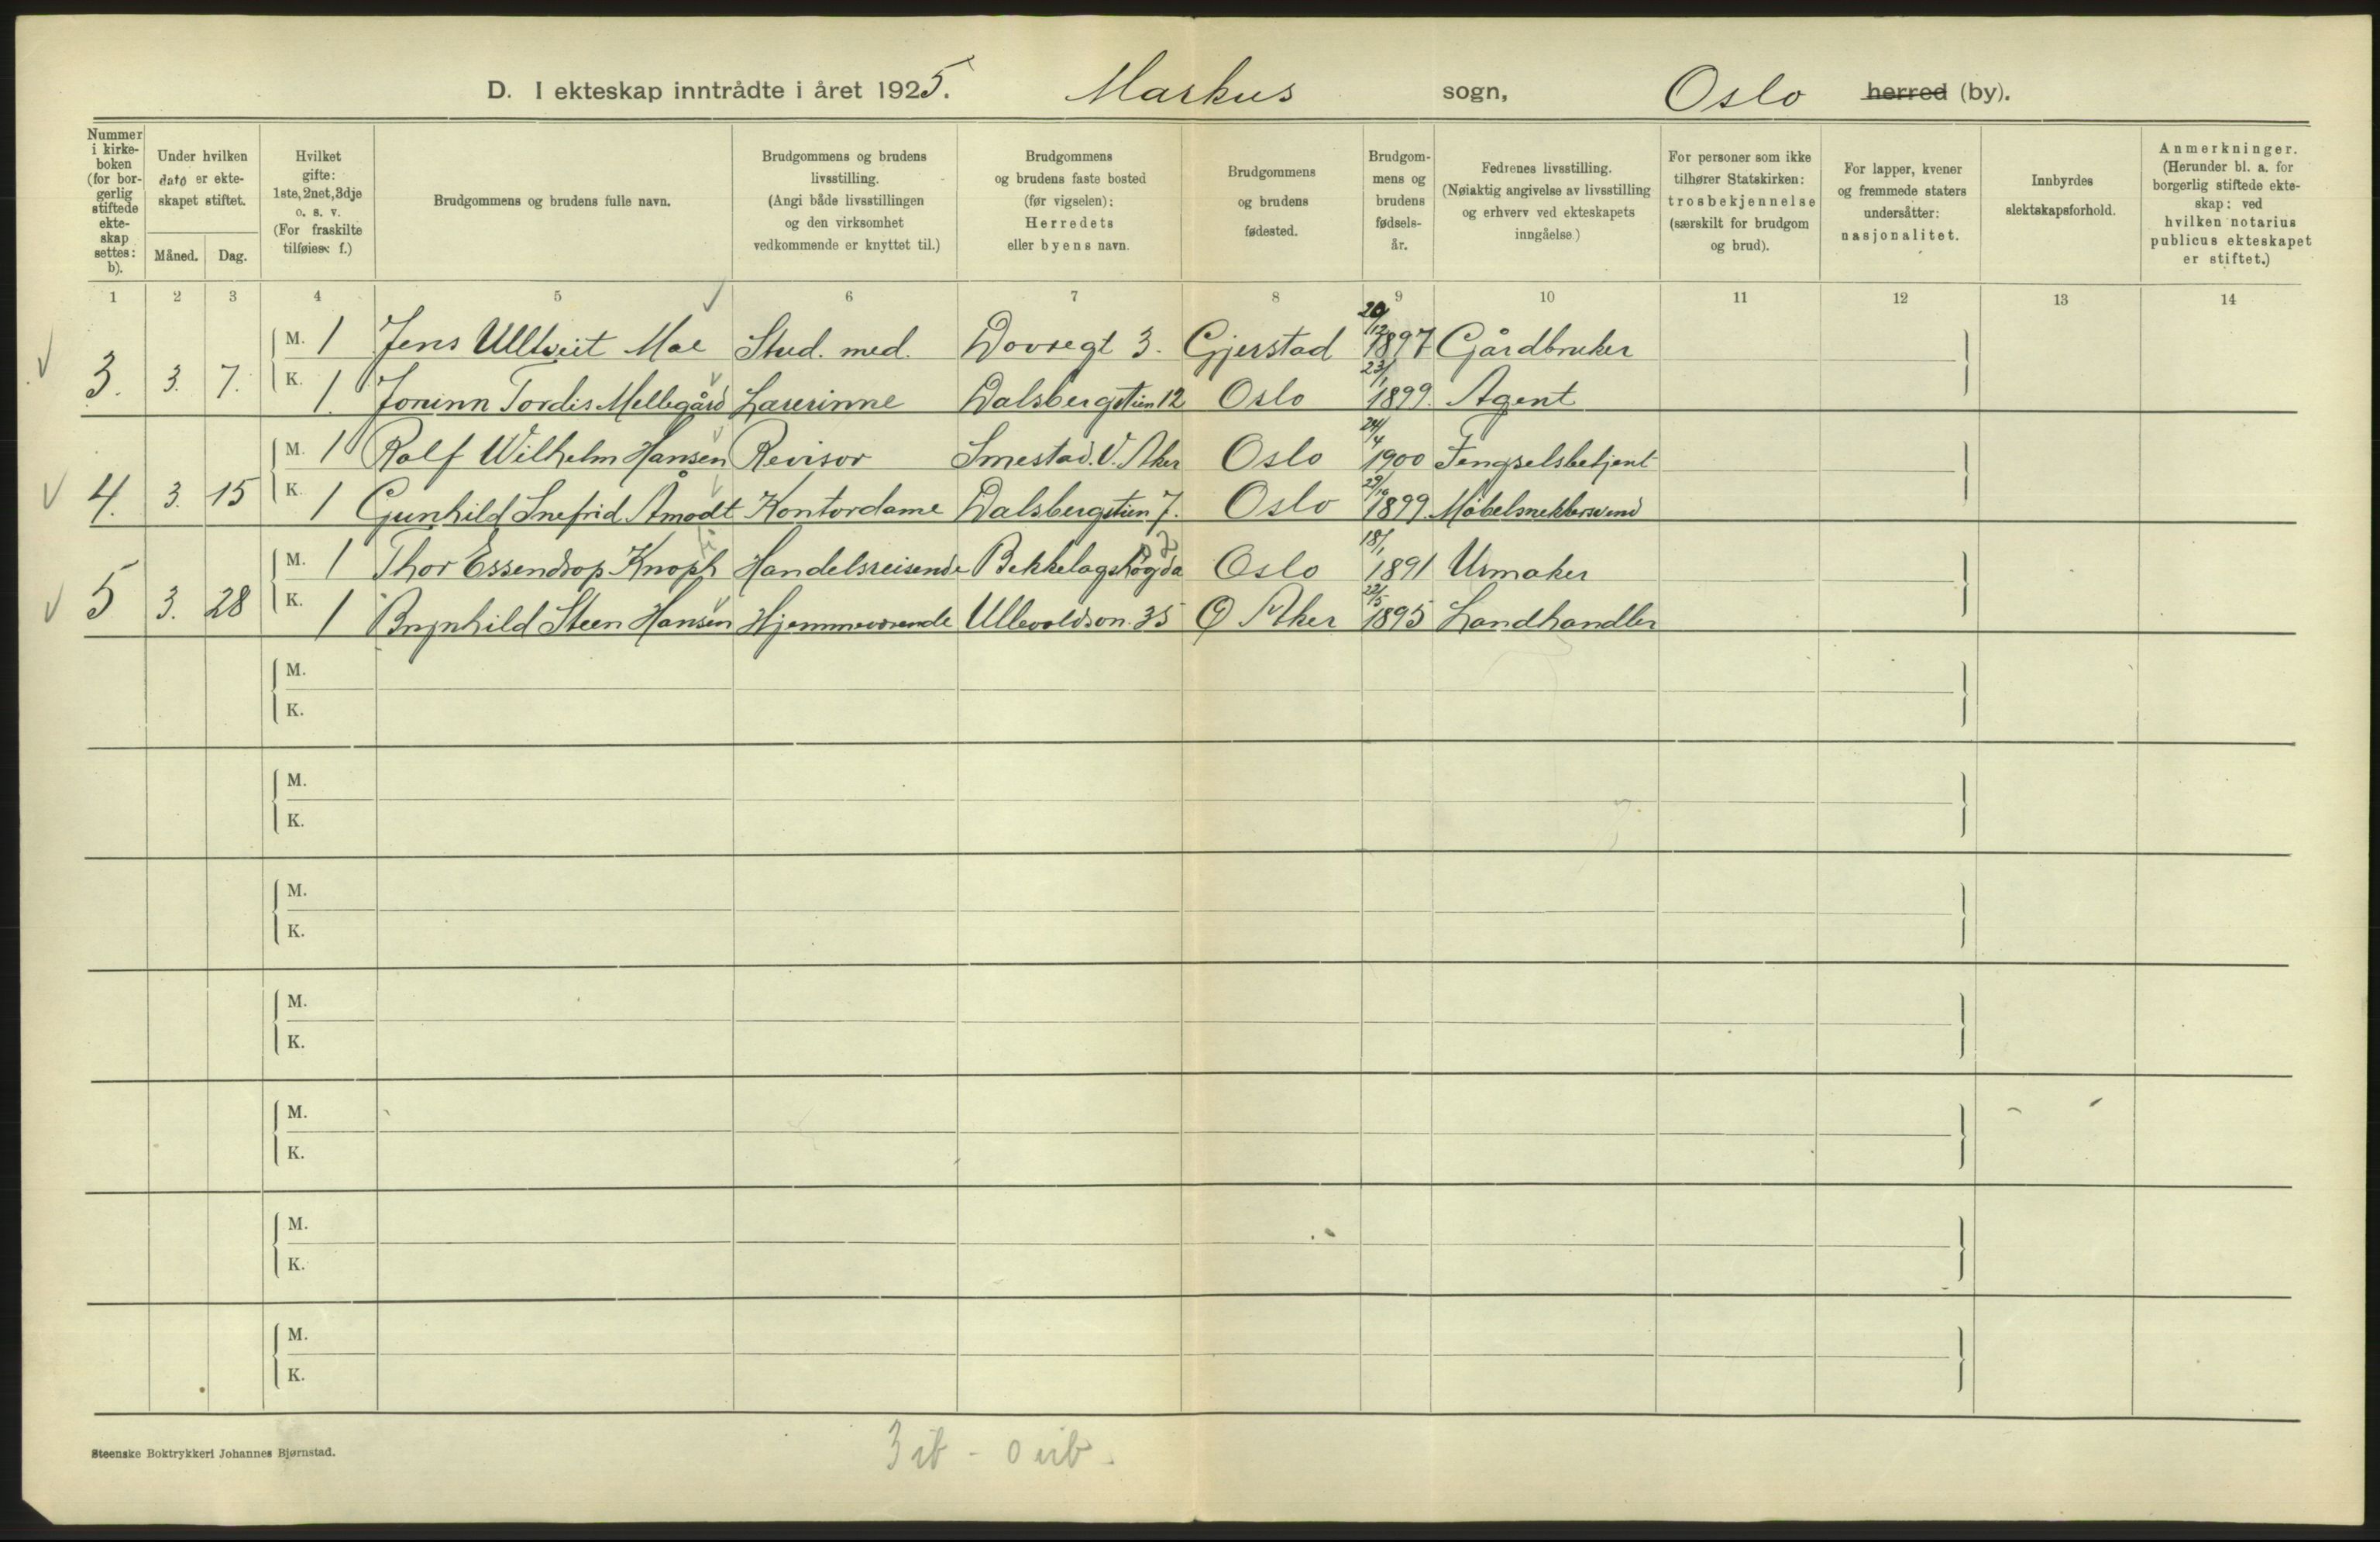 D. I ekteskap inntrådte i året 1925. Markus sogn, Oslo herred (by).
Nummer i kirke-boken (for bor-gerlig stiftede ekte-skap settes: b).
Under hvilken dato er ekte-skapet stiftet.
Måned. Dag.
Hvilket gifte: 1ste, 2net, 3dje o. s. v. (For fraskilte tilføies: f.)
Brudgommens og brudens fulle navn.
Brudgommens og brudens livsstilling. (Angi både livsstillingen og den virksomhet vedkommende er knyttet til.)
Brudgommens og brudens faste bosted (før vigselen): Herredets eller byens navn.
Brudgommens og brudens fødested.
Brudgom-mens og brudens fødsels-år.
Fedrenes livsstilling. (Nøiaktig angivelse av livsstilling og erhverv ved ekteskapets inngåelse.)
For personer som ikke tilhører Statskirken: trosbekjennelse (særskilt for brudgom og brud).
For lapper, kvener og fremmede staters undersåtter: nasjonalitet.
Innbyrdes slektskapsforhold.
Anmerkninger. (Herunder bl. a. for borgerlig stiftede ekte-skap: ved hvilken notarius publicus ekteskapet er stiftet.)
1 2 3 4 5 6 7 8 9 10 11 12 13 14
M. 1 Jens Ulltveit Moe Stud. med. Dovregt 3. Gjerstad 20/12 1897 Gårdbruker
3. 3. 7.
K. 1. Jorunn Tordis Mellegård Lærerinne Dalsbergstien 12 Oslo 23/1 1899. Agent
M. 1 Rolf Wilhelm Hansen Revisor Smestad. V. Aker Oslo 24/4 1900 Fengselsbetjent
4. 3. 15
K. 1 Gunhild Snefrid Åmodt Kontordame Dalsbergstien 7. Oslo 1899. Møbelsnekkersvend
M. 1 Thor Essendrop Knoph Handelsreisende Bekkelagshøgda Oslo 18/1 1891 Urmaker
5 3. 28
K. 1 Brynhild Steen Hansen Hjemmeværende Ullevoldsvn. 35 Ø Aker 22/5 1895 Landhandler
M.
K.
M.
K.
M.
K.
M.
K.
M.
K.
M.
K.
M.
K.
Steenske Boktrykkeri Johannes Bjørnstad.
3 ib - 0 uib.